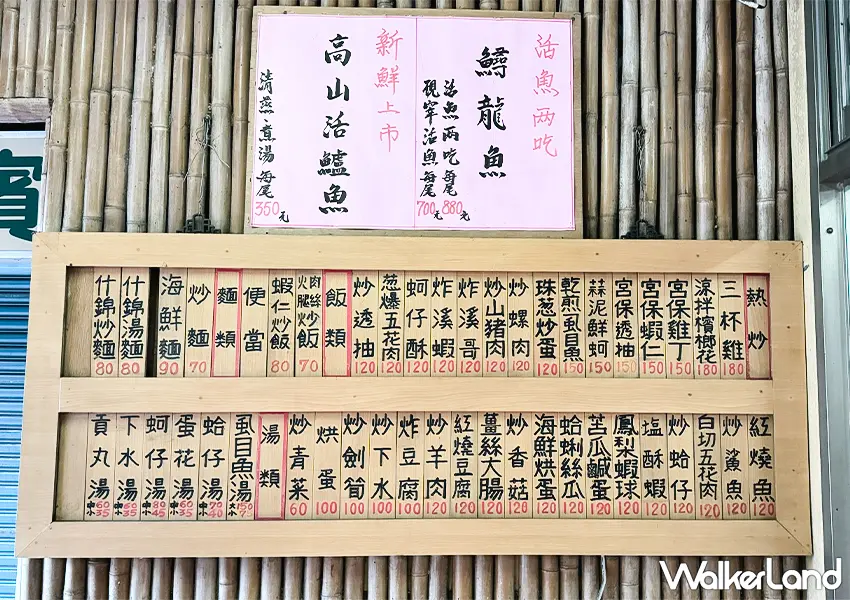 活魚兩吃
鱘龍魚
活魚兩吃每尾880元
現宰活魚每尾700元
新鮮上市
高山活鱸魚
清蒸 煮湯 每尾350元
賓
熱炒
三杯雞 180
涼拌檳榔花 180
宮保雞丁 150
宮保蝦仁 150
宮保透抽 150
蒜泥鮮蚵 150
乾煎虱目魚 150
珠葱炒蛋 120
炒螺肉 120
炒山猪肉 120
炸溪哥 120
炸溪蝦 120
蚵仔酥 120
葱爆五花肉 120
炒透抽 120
飯類
肉絲火腿炒飯 70
蝦仁炒飯 80
便當
麵類
炒麵 70
海鮮麵 90
什錦湯麵 80
什錦炒麵 80
紅燒魚 120
炒鯊魚 120
白切五花肉 120
炒蛤仔 120
塩酥蝦 120
鳳梨蝦球 120
苦瓜鹹蛋 120
蛤蜊絲瓜 120
海鮮烘蛋 120
炒香菇 120
薑絲大腸 120
紅燒豆腐 120
炒羊肉 120
炸豆腐 100
炒下水 100
炒劍筍 100
烘蛋 100
炒青菜 60
湯類
虱目魚湯 大150 小75
蛤仔湯 中70 小40
蛋花湯 中60 小35
蚵仔湯 中80 小45
下水湯 中60 小35
貢丸湯 中60 小35
WalkerLand